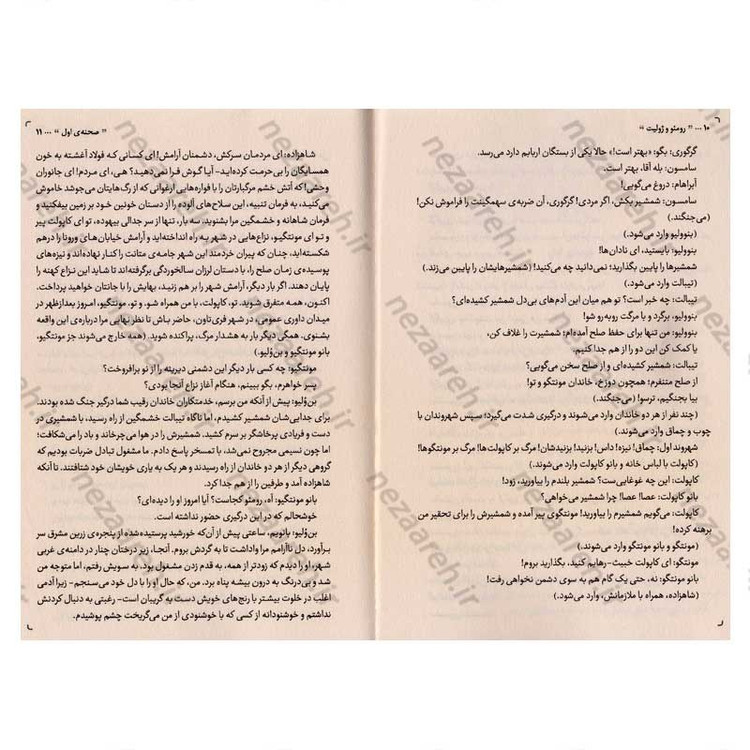 ۱۰ ... " رومئو و ژولیت "
گرگوری: بگو: «بهتر است!» حالا یکی از بستگان اربابم دارد می‌رسد.
سامسون: بله آقا، بهتر است.
آبراهام: دروغ می‌گویی!
سامسون: شمشیر بکش، اگر مردی! گرگوری، آن ضربه‌ی سهمگینت را فراموش نکن!
(می‌جنگند.)
(بنوولیو وارد می‌شود.)
بنوولیو: بایستید، ای نادان‌ها!
شمشیرها را پایین بگذارید؛ نمی‌دانید چه می‌کنید! (شمشیرهایشان را پایین می‌زند.)
(تیبالت وارد می‌شود.)
تیبالت: چه خبر است؟ تو هم میان این آدم‌های بی‌دل شمشیر کشیده‌ای؟
بنوولیو: برگرد و با مرگت روبه‌رو شو!
بنوولیو: من تنها برای حفظ صلح آمده‌ام؛ شمشیرت را غلاف کن،
یا کمک کن این دو را از هم جدا کنیم.
تیبالت: شمشیر کشیده‌ای و از صلح سخن می‌گویی؟
از صلح متنفرم؛ همچون دوزخ، خاندان مونتگو و تو!
بیا بجنگیم، ترسو! (می‌جنگند.)
(چند نفر از هر دو خاندان وارد می‌شوند و درگیری شدت می‌گیرد؛ سپس شهروندان با
چوب و چماق وارد می‌شوند.)
شهروند اول: چماق! نیزه! داس! بزنید! بزنیدشان! مرگ بر کاپولت‌ها! مرگ بر مونتگوها!
(کاپولت با لباس خانه و بانو کاپولت وارد می‌شوند.)
کاپولت: این چه غوغایی‌ست؟ شمشیر بلندم را بیاورید، زود!
بانو کاپولت: عصا! عصا! چرا شمشیر می‌خواهی؟
کاپولت: می‌گویم شمشیرم را بیاورید! مونتگوی پیر آمده و شمشیرش را برای تحقیر من
برهنه کرده!
(مونتگو و بانو مونتگو وارد می‌شوند.)
مونتگو: ای کاپولت خبیث- رهایم کنید، بگذارید بروم!
بانو مونتگو: نه، حتی یک گام هم به سوی دشمن نخواهی رفت!
(شاهزاده، همراه با ملازمانش، وارد می‌شود.)
" صحنه‌ی اول " ... ۱۱
شاهزاده: ای مردمان سرکش، دشمنان آرامش! ای کسانی که فولاد آغشته به خون
همسایگان را بی‌حرمت کرده‌اید- آیا گوش فرا نمی‌دهید؟ هی، ای مردم! ای جانوران
وحشی! که آتش خشم مرگبارتان را با فواره‌هایی ارغوانی که از رگ‌هایتان می‌جوشد خاموش
می‌کنید، به فرمان تنبیه، این سلاح‌های آلوده را از دستان خونین خود بر زمین بیفکنید و
فرمان شاهانه و خشمگین مرا بشنوید. سه بار، تنها از سر جدالی بیهوده، تو ای کاپولت پیر
و تو ای مونتگیو، نزاع‌هایی در شهر به راه انداخته‌اید و آرامش خیابان‌های ورونا را درهم
شکسته‌اید، چنان که پیران خردمند این شهر جامه‌ی متانت را کنار نهاده‌اند و نیزه‌های
پوسیده‌ی زمان صلح را، با دستان لرزان سالخوردگی برگرفته‌اند تا شاید این نزاع کهنه را
پایان دهند. اگر بار دیگر، آرامش شهر را بر هم زنید، بهایش را با جانتان خواهید پرداخت.
اکنون، همه متفرق شوید. تو، کاپولت، با من همراه شو. و تو، مونتگیو، امروز بعدازظهر در
میدان داوری عمومی، در شهر فری‌تاون، حاضر باش تا نظر نهایی مرا درباره‌ی این واقعه
بشنوی. همگی دیگر بار به هشدار مرگ، پراکنده شوید. (همه خارج می‌شوند جز مونتگیو،
بانو مونتگیو و بن‌وُلیو.)
مونتگیو: چه کسی بار دیگر این دشمنی دیرینه را از نو برافروخت؟
پسر خواهرم، بگو ببینم، هنگام آغاز نزاع آنجا بودی؟
بن‌وُلیو: پیش از آنکه من برسم، خدمتکاران خاندان رقیب شما درگیر جنگ شده بودند.
برای جدایی‌شان شمشیر کشیدم، اما ناگاه تیبالت خشمگین از راه رسید، با شمشیری در
دست و فریادی پرخاشگر بر سرم کشید. شمشیرش را در هوا می‌چرخاند و باد را می‌شکافت؛
اما چون نسیمی مجروح نمی‌شد، با تمسخر پاسخ دادم. ما مشغول تبادل ضربات بودیم که
گروهی دیگر از هر دو خاندان از راه رسیدند و هر یک به یاری خویشان خود شتافتند. تا آنکه
شاهزاده آمد و طرفین را از هم جدا کرد.
بانو مونتگیو: آه، رومئو کجاست؟ آیا امروز او را دیده‌ای؟
خوشحالم که در این درگیری حضور نداشته است.
بن‌وُلیو: بانویم، ساعتی پیش از آن‌که خورشید پرستیده‌شده از پنجره‌ی زرین مشرق سر
برآورد، دل ناآرامم مرا واداشت تا به گردش بروم. آنجا، زیر درختان چنار در دامنه‌ی غربی
شهر، او را دیدم که زودتر از همه، به قدم زدن مشغول بود. به سویش رفتم، اما متوجه من
شد و بی‌درنگ به درون بیشه پناه برد. من، که حال او را با دل خود می‌سنجم- زیرا آدمی
اغلب در خلوت بیشتر با رنج‌های خویش دست به گریبان است- رغبتی به دنبال کردنش
نداشتم و خوشنودانه از کسی که با خوشنودی از من می‌گریخت چشم پوشیدم.
nezaareh.ir